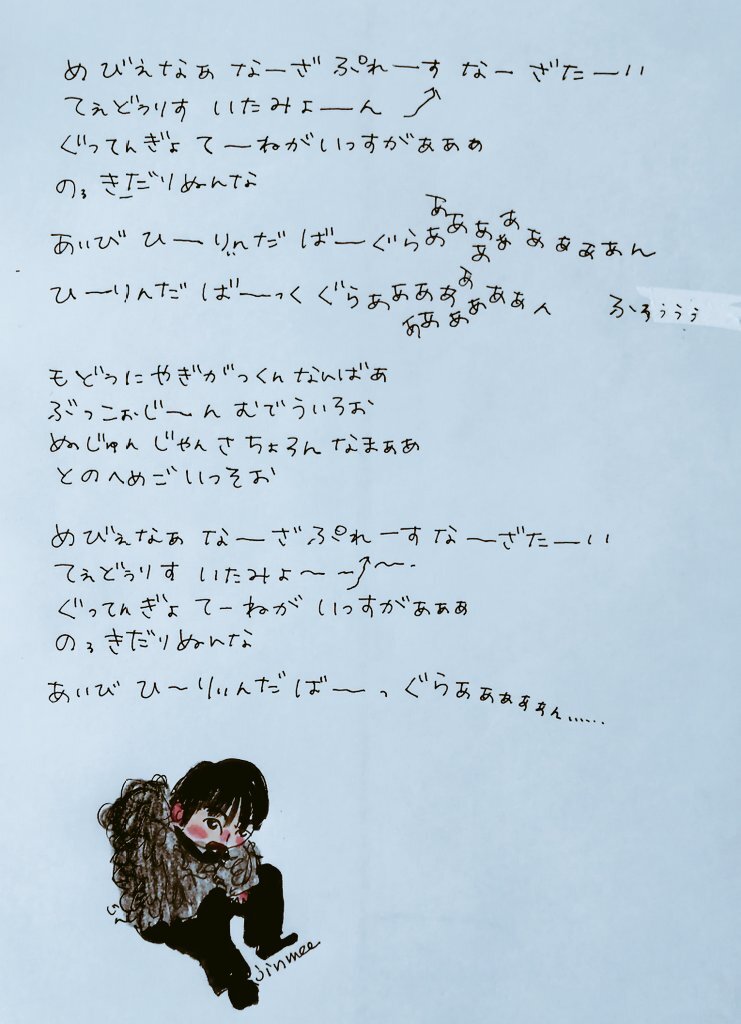 めびえなぁ なーざ ぷれーす なー ざたーい
てぇどぅりす いたみょーん
ぐってんぎょ てーねが いっすがぁぁぁ
のぅきだりぬんな
あいび ひーりんだ ばーぐらぁあぁぁあぁぁあぁぁぁぁん
ひーりんだ ばーっく ぐらぁあああああああぁぁぁん ふぅぅぅぅ
もどぅにやぎがっくんないばぁ
ぶっこぉじ〜ん むでういろお
ぬじゅん じゃんさ ちょろん なまぁぁ
とのへめごいっそお
めびえなぁ な〜ざぷれーす な〜ざたーい
てぇどぅりす いたみょ〜ー〜
ぐってんぎょ てーねが いっすがぁぁぁ
のぅきだりぬんな
あいび ひ〜りぃんだば〜っ ぐらぁぁぁぁぁん……
jinmee